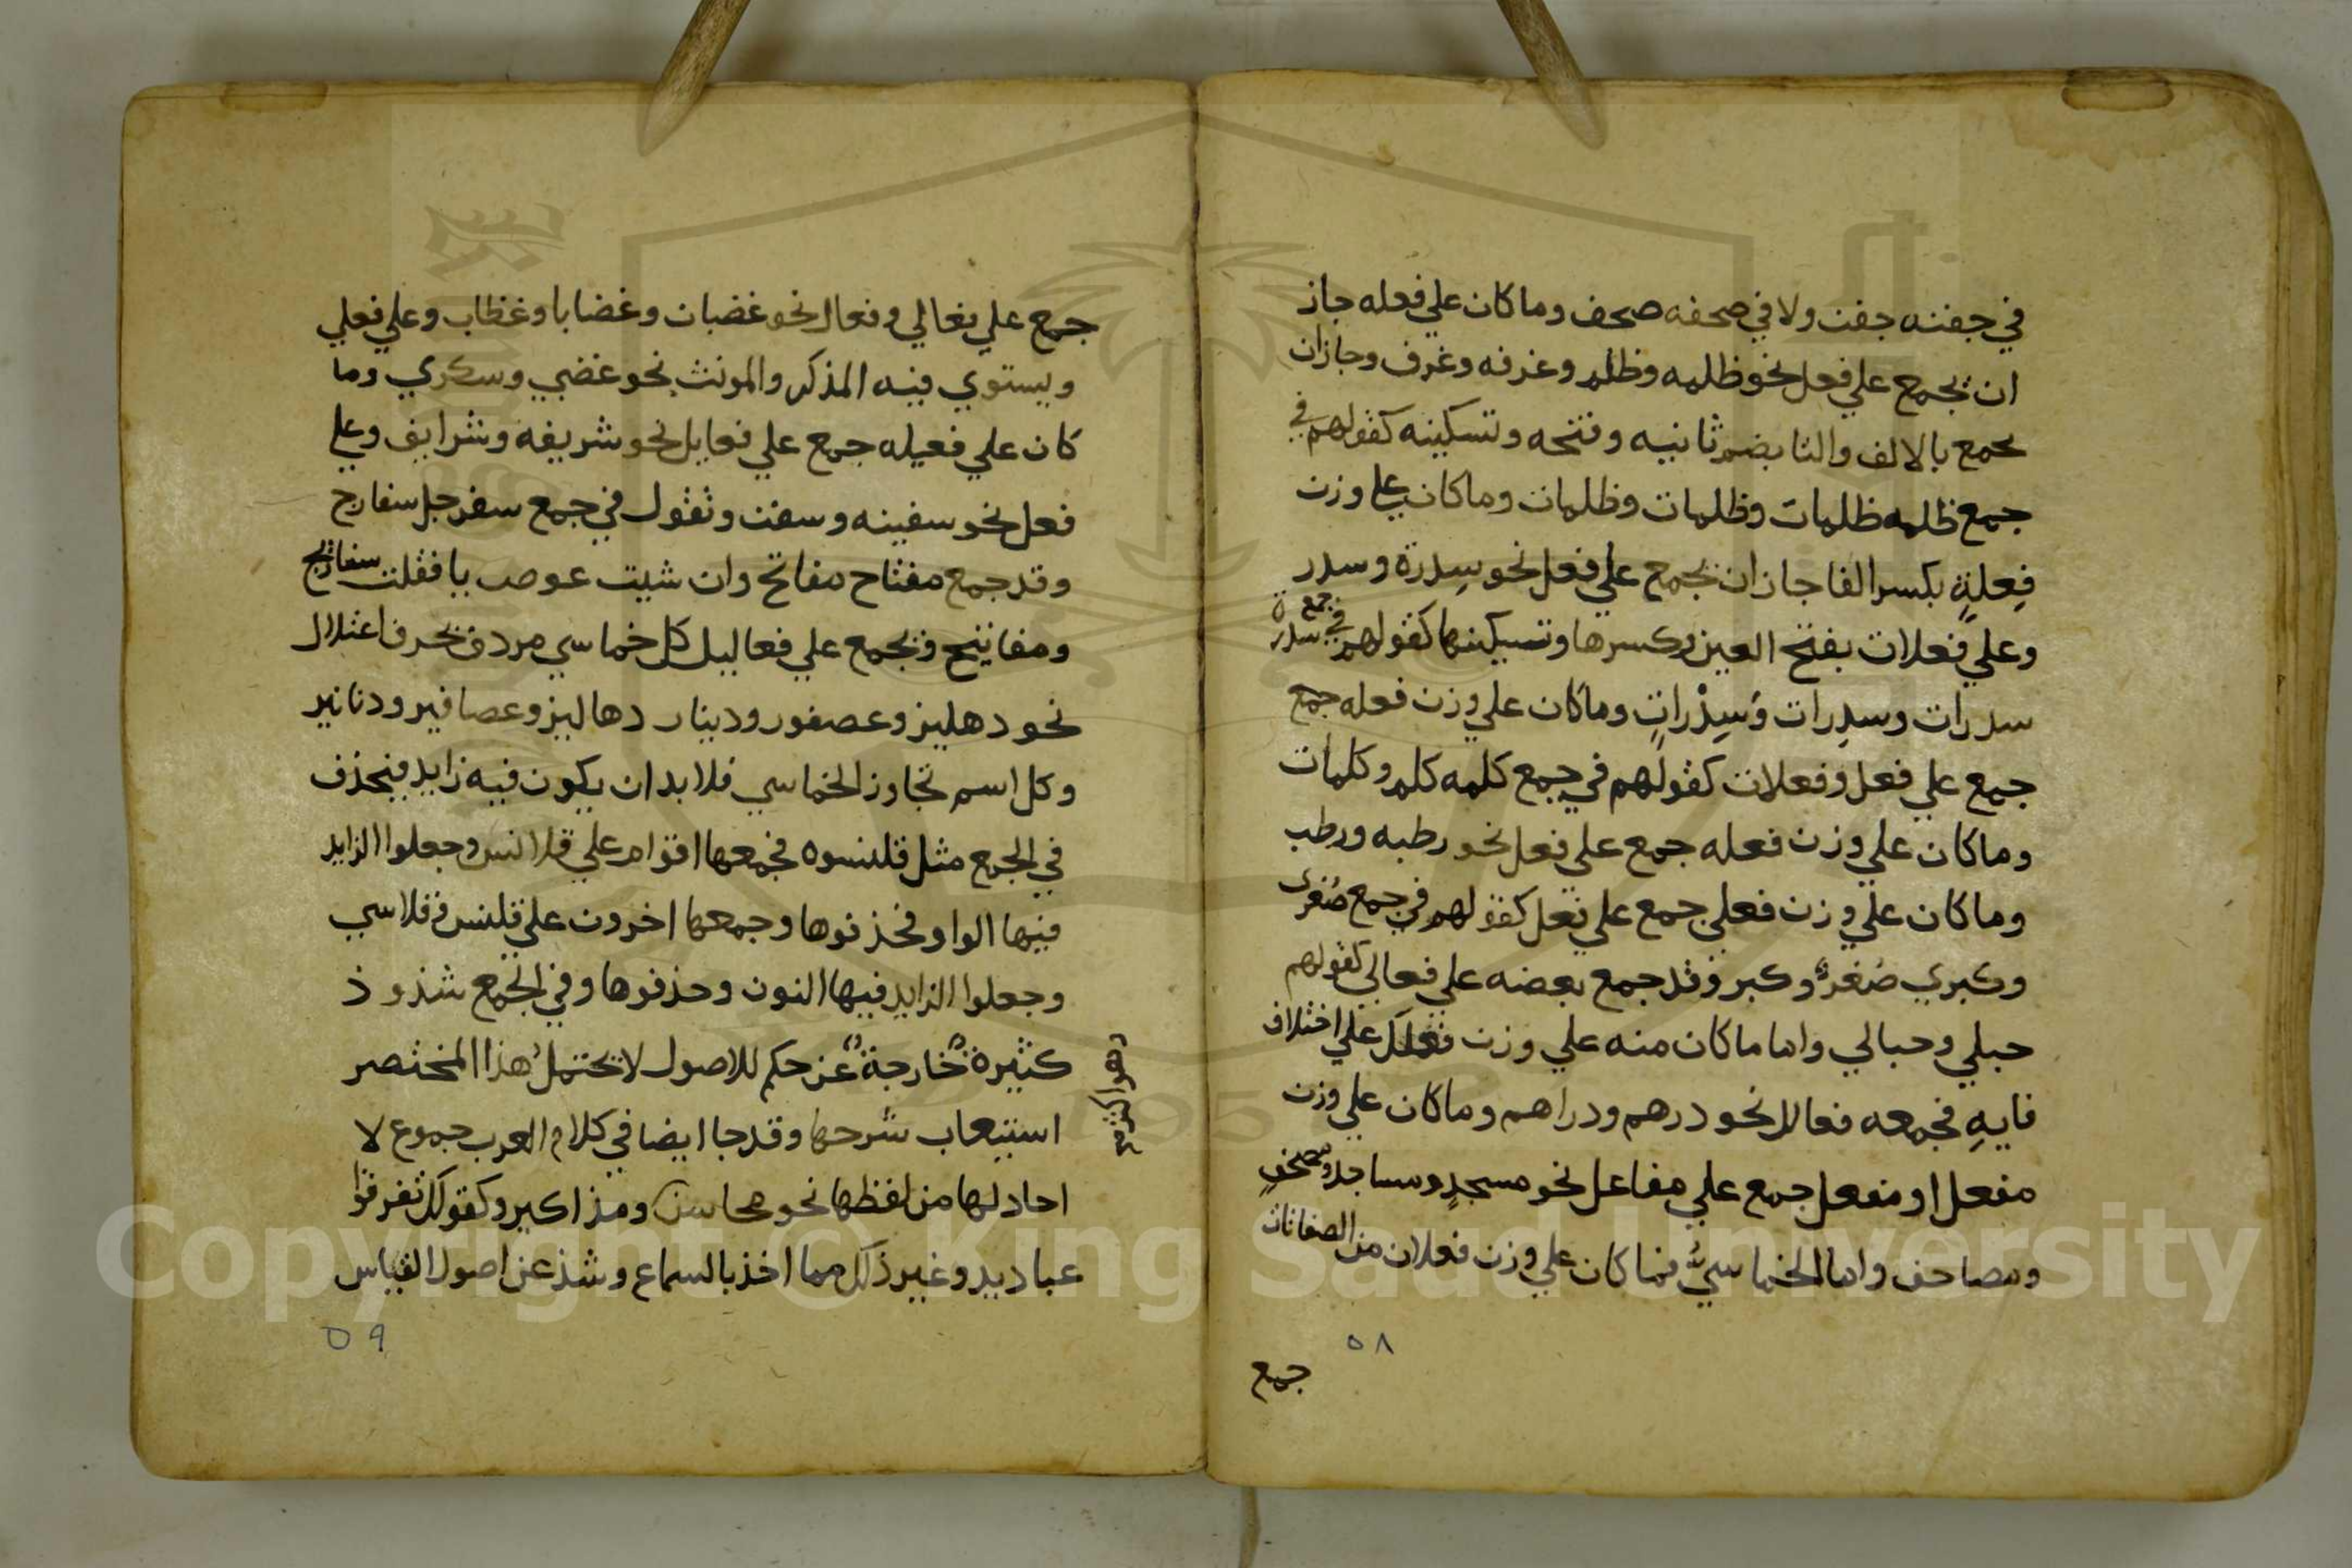 في جفنه جفن ولا في صحفه صحف وما كان علي فعله جاز
ان يجمع علي فعل نحو ظلمه وظلم وغرفه وغرف وجاز ان
يجمع بالالف والتا بضم ثانيه وفتحه وتسكينه كقولهم في
جمع ظلمه ظلمات وظلمات وظلمات وما كان علي وزن
فِعلةٍ بكسر الفا جاز ان يجمع علي فعل نحو سِدرة وسدر
وعلي فعلات بفتح العين وكسرها وتسكينها كقولهم في جمع سدرة
سدرات وسدِرات وَسِدْراتٍ وما كان علي وزن فعله جمع
جمع علي فعل وفعلات كقولهم في جمع كلمه كلم وكلمات
وما كان علي وزن فعله جمع علي فعل نحو رطبه ورطب
وما كان علي وزن فعلي جمع علي فعل كقولهم في جمع صُغرى
وكبري صُغرٌ وكبر وقد جمع بعضه علي فعالي كقولهم
حبلي وحبالي واما ما كان منه علي وزن فعلل علي اختلاف
فايهِ فجمعه فعالل نحو درهم ودراهم وما كان علي وزن
مفعل او مفعل جمع علي مفاعل نحو مسجدٍ ومساجد ومصحفٍ
ومصاحف واما الخماسيُّ فما كان علي وزن فعلان من الصفات
٥٨
جمع
جمع علي فعالي وفعال نحو غضبان وغضابا وغظاب وعلي فعلي
ويستوي فيه المذكر والمونث نحو غضبي وسكري وما
كان علي فعيله جمع علي فعايل نحو شريفه وشرايف وعلي
فعل نحو سفينه وسفن وتقول في جمع سفرجل سفارج
وقد جمع مفتاح مفاتح وان شيت عوصت يا فقلت سفاريج
ومفاتيح ويجمع علي فعاليل كل خماسي مردف بحرف اعتلال
نحو دهليز وعصفور ودينار دهاليز وعصافير ودنانير
وكل اسم تجاوز الخماسي فلا بد ان يكون فيه زايد فيحذف
في الجمع مثل قلنسوه فجمعها اقوام علي قلانس وجعلوا الزايد
فيها الواو فحذفوها وجمعها اخرون علي قلنس وقلاسي
وجعلوا الزايد فيها النون وحذفوها وفي الجمع شذوذ
كثيرةٌ خارجةٌ عن حكم للاصول لا تحتملُ هذا المختصر
استيعاب شرحها وقد جا ايضا في كلام العرب جموع لا
احاد لها من لفظها نحو محاسن ومذاكير وكقولك تفرقوا
عباديد وغير ذلك مما اخذ بالسماع وشذ عن اصول القياس
٥٩
Copyright © King Saud University
1957